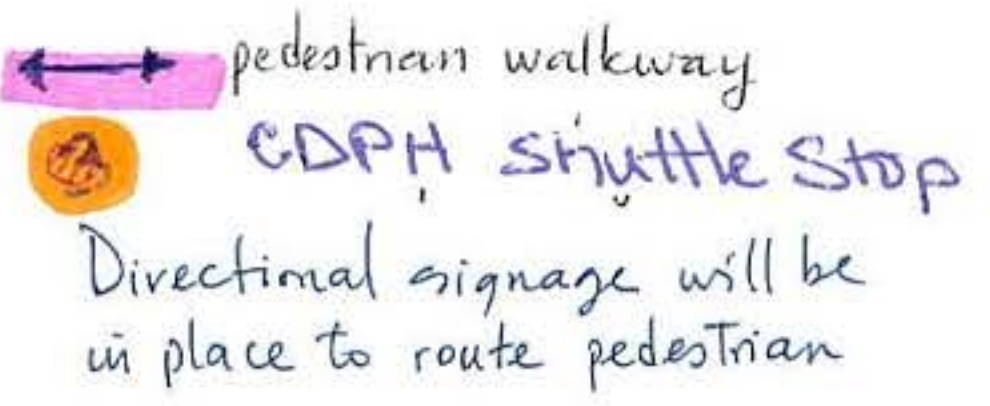 pedestrian walkway
CDPH Shuttle Stop
Directional signage will be
in place to route pedestrian